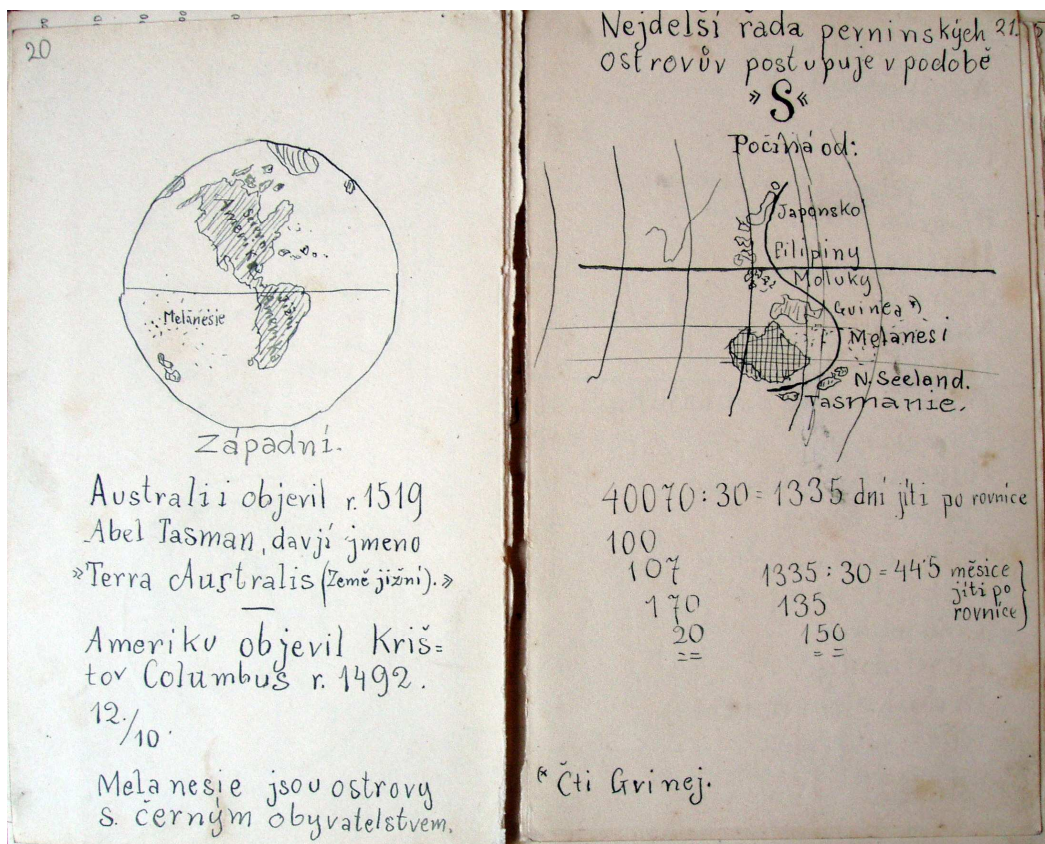 20
Severní
Amerika
Jižní
Amerika
Melanesie
Západní.
Australii objevil r. 1519
Abel Tasman, davjí jmeno
»Terra Australis (Země jižní).»
Ameriku objevil Kriš=
tov Columbus r. 1492.
12./10.
Melanesie jsou ostrovy
s. černým obyvatelstvem.
Nejdelší řada perninských 21.
ostrovův postupuje v podobě
»S«
Počíná od:
Japonsko
Filipiny
Moluky
Guinea *)
Melanesi
N. Seeland.
Tasmanie.
40070 : 30 = 1335 dní jíti po rovnice
100
107
170
20
1335 : 30 = 44'5 měsice
jíti po
rovnice
135
150
(* Čti Gvinej.